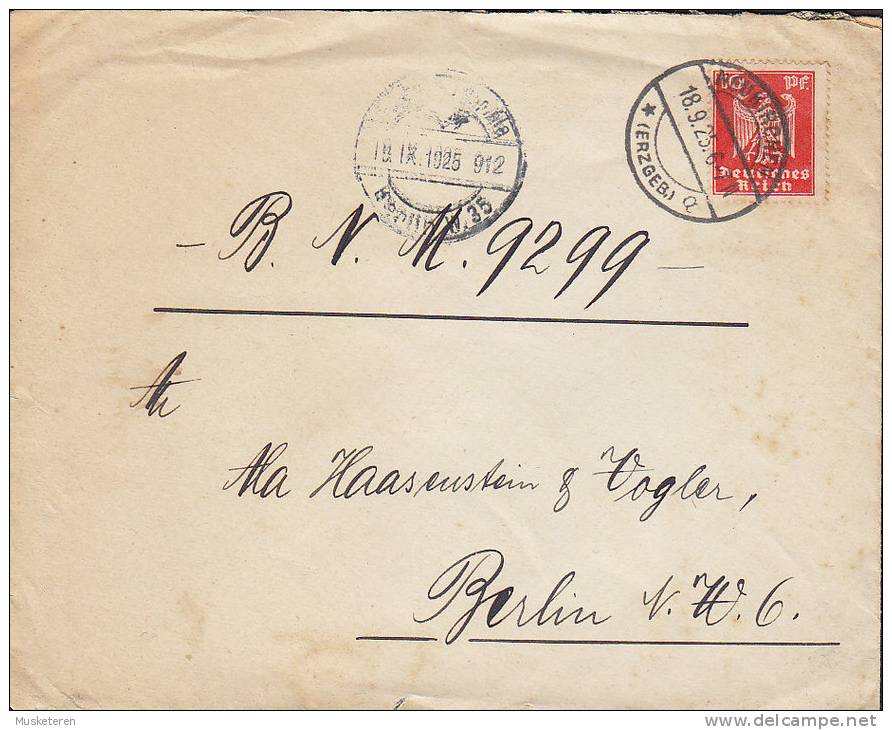 10 PF
Deutsches
Reich
NEUKIRCHEN
18.9.25.6-7N
* (ERZGEB.) a
19.IX.1925 912
Berlin W.35
- B. N. M. 9299 -
An
Ala Haasenstein & Vogler,
Berlin N.W. 6.
Musketeren
delcampe.net